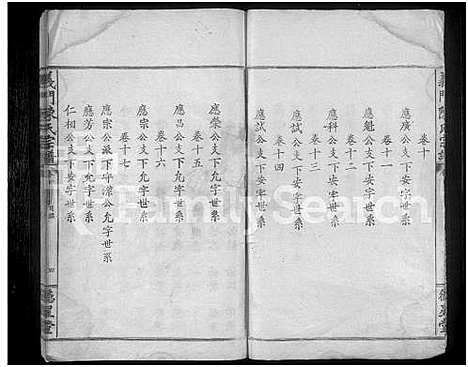 卷十
應廣公支下安字世系
卷十一
應魁公支下安字世系
卷十二
應科公支下安字世系
卷十三
應試公支下安字世系
卷十四
應試公支下安字世系
應榮公支下允字世系
卷十五
應昌公支下允字世系
卷十六
應宗公支下允字世系
卷十七
應宗公派下守濚公允字世系
應芳公支下允字世系
仁相公支下安字世系
義門陳氏宗譜
德星堂
FamilySearch